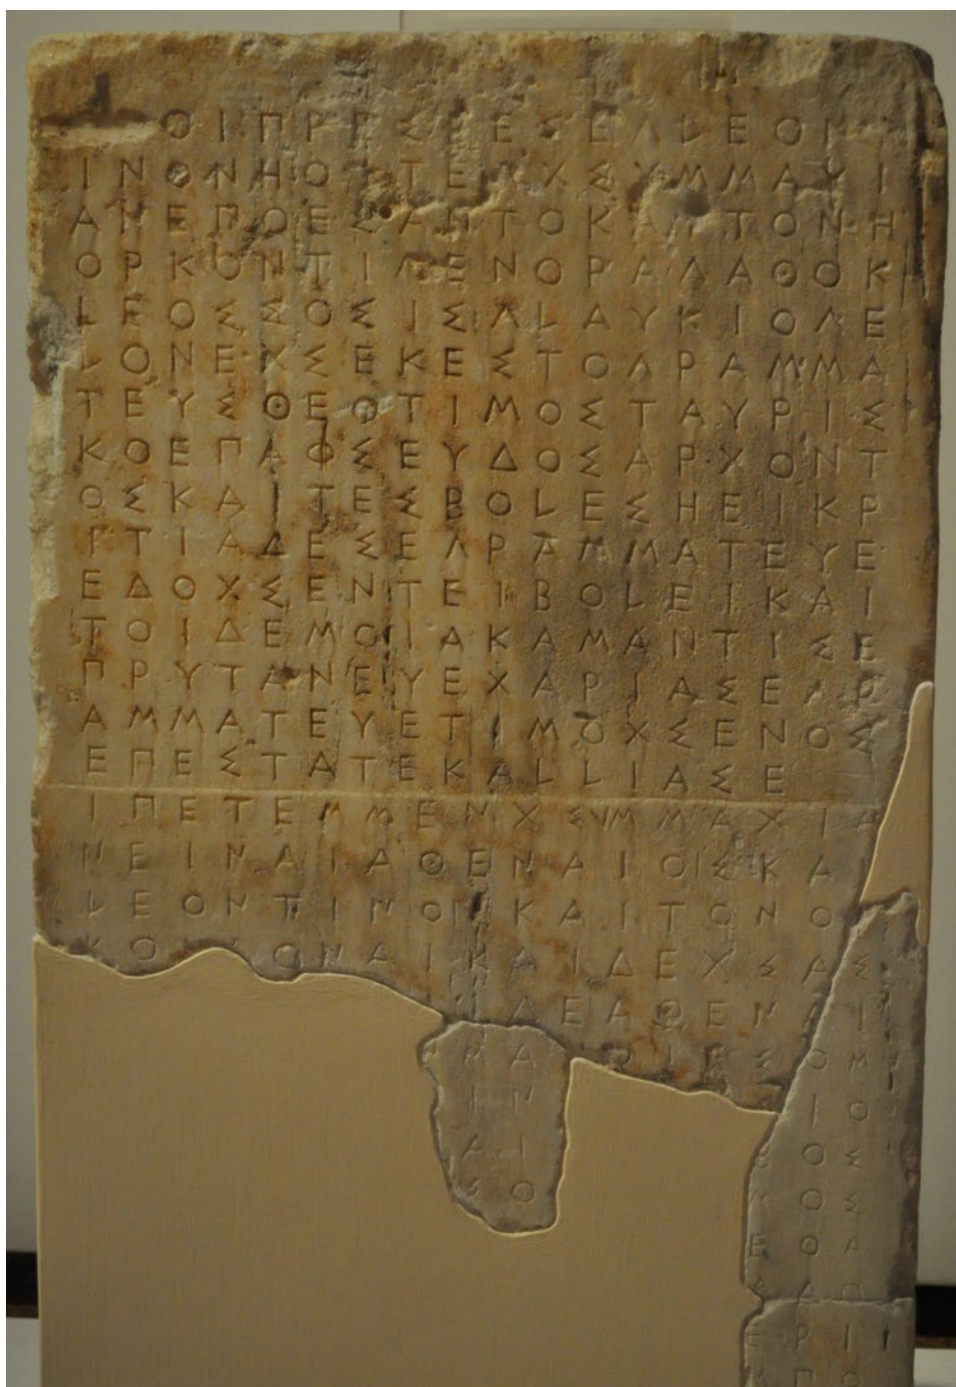 ΟΙΠΡΕΣΒΕΣΕΓΛΕΟΝ
ΙΝΟΝΗΟΙΤΕΝΧΣΥΜΜΑΧΙ
ΑΝΕΠΟΕΣΑΝΤΟΚΑΙΤΟΝΗ
ΟΡΚΟΝΤΙΜΕΝΟΡΑΓΑΘΟΚ
ΛΕΟΣΣΟΣΙΣΓΛΑΥΚΙΟΓΕ
ΛΟΝΕΧΣΕΚΕΣΤΟΓΡΑΜΜΑ
ΤΕΥΣΘΕΟΤΙΜΟΣΤΑΥΡΙΣ
ΚΟΕΠΑΦΣΕΥΔΟΣΑΡΧΟΝΤ
ΟΣΚΑΙΤΕΣΒΟΛΕΣΗΕΙΚΡ
ΙΤΙΑΔΕΣΕΓΡΑΜΜΑΤΕΥΕ
ΕΔΟΧΣΕΝΤΕΙΒΟΛΕΙΚΑΙ
ΤΟΙΔΕΜΟΙΑΚΑΜΑΝΤΙΣΕ
ΠΡΥΤΑΝΕΥΕΧΑΡΙΑΣΕΓΡ
ΑΜΜΑΤΕΥΕΤΙΜΟΧΣΕΝΟΣ
ΕΠΕΣΤΑΤΕΚΑΛΛΙΑΣΕ
ΙΠΕΤΕΜΜΕΝΧΣΥΜΜΑΧΙΑ
ΝΕΙΝΑΙΑΘΕΝΑΙΟΙΣΚΑ
ΛΕΟΝΤΙΝΟΙ ΚΑΙΤΟΝΟ
ΚΟΝ ΟΝΑΙΚΑΙΔΕΧΣΑΣ
ΔΕΑΘΕΝΑΙ